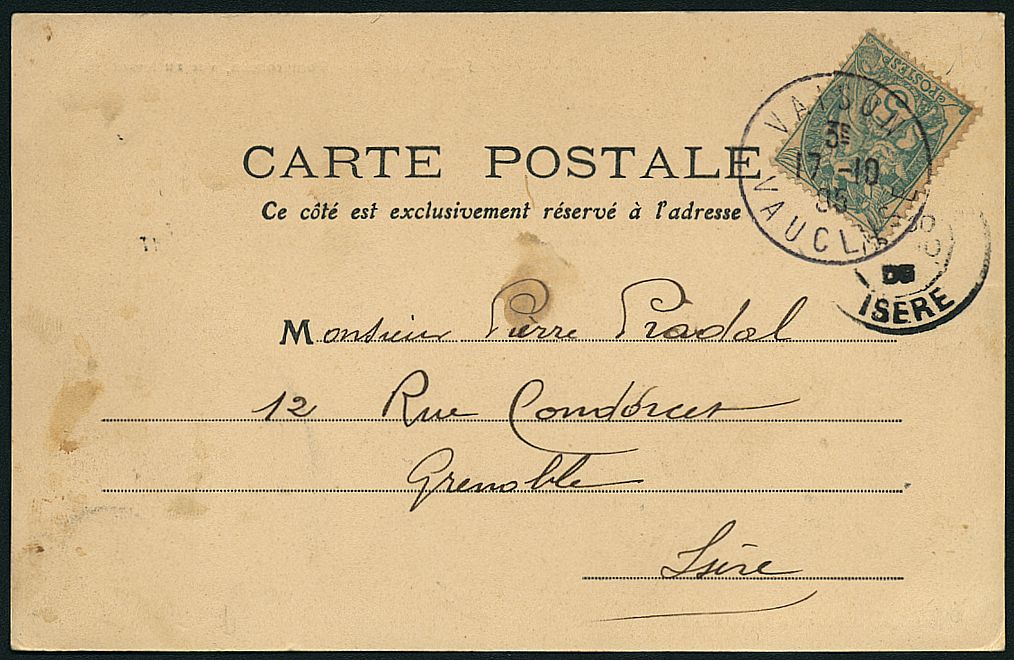 CARTE POSTALE
Ce côté est exclusivement réservé à l'adresse
POSTES
5
VAISON
3E
17 -10
05
VAUCL
ISÈRE
Monsieur Pierre Pradal
12 Rue Condorcet
Grenoble
Isère